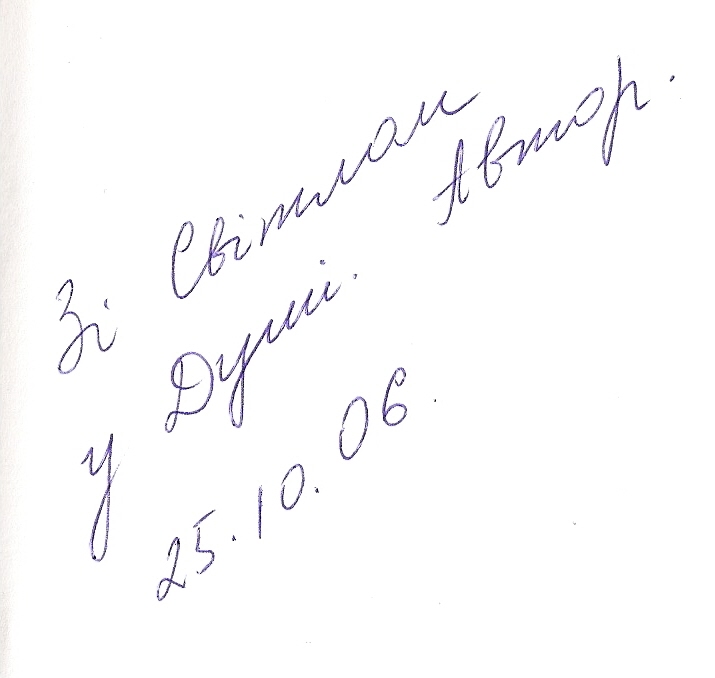 Зі Світлом
у Душі. Автор.
25.10.06.